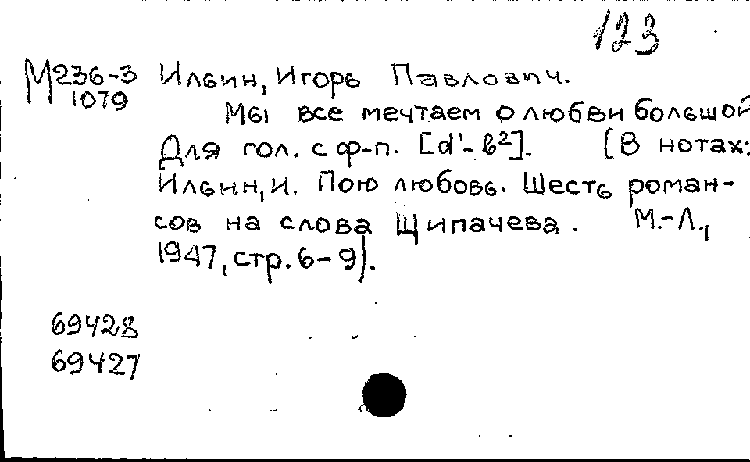 123
М236-3 Ильин, Игорь Павлович.
1079
Мы все мечтаем о любви большой
Для гол. с ф-п. [d'-b²]. [В нотах:
Ильин, И. Пою любовь. Шесть роман-
сов на слова Щипачева. М.-Л.,
1947, стр. 6-9].
69428
69427